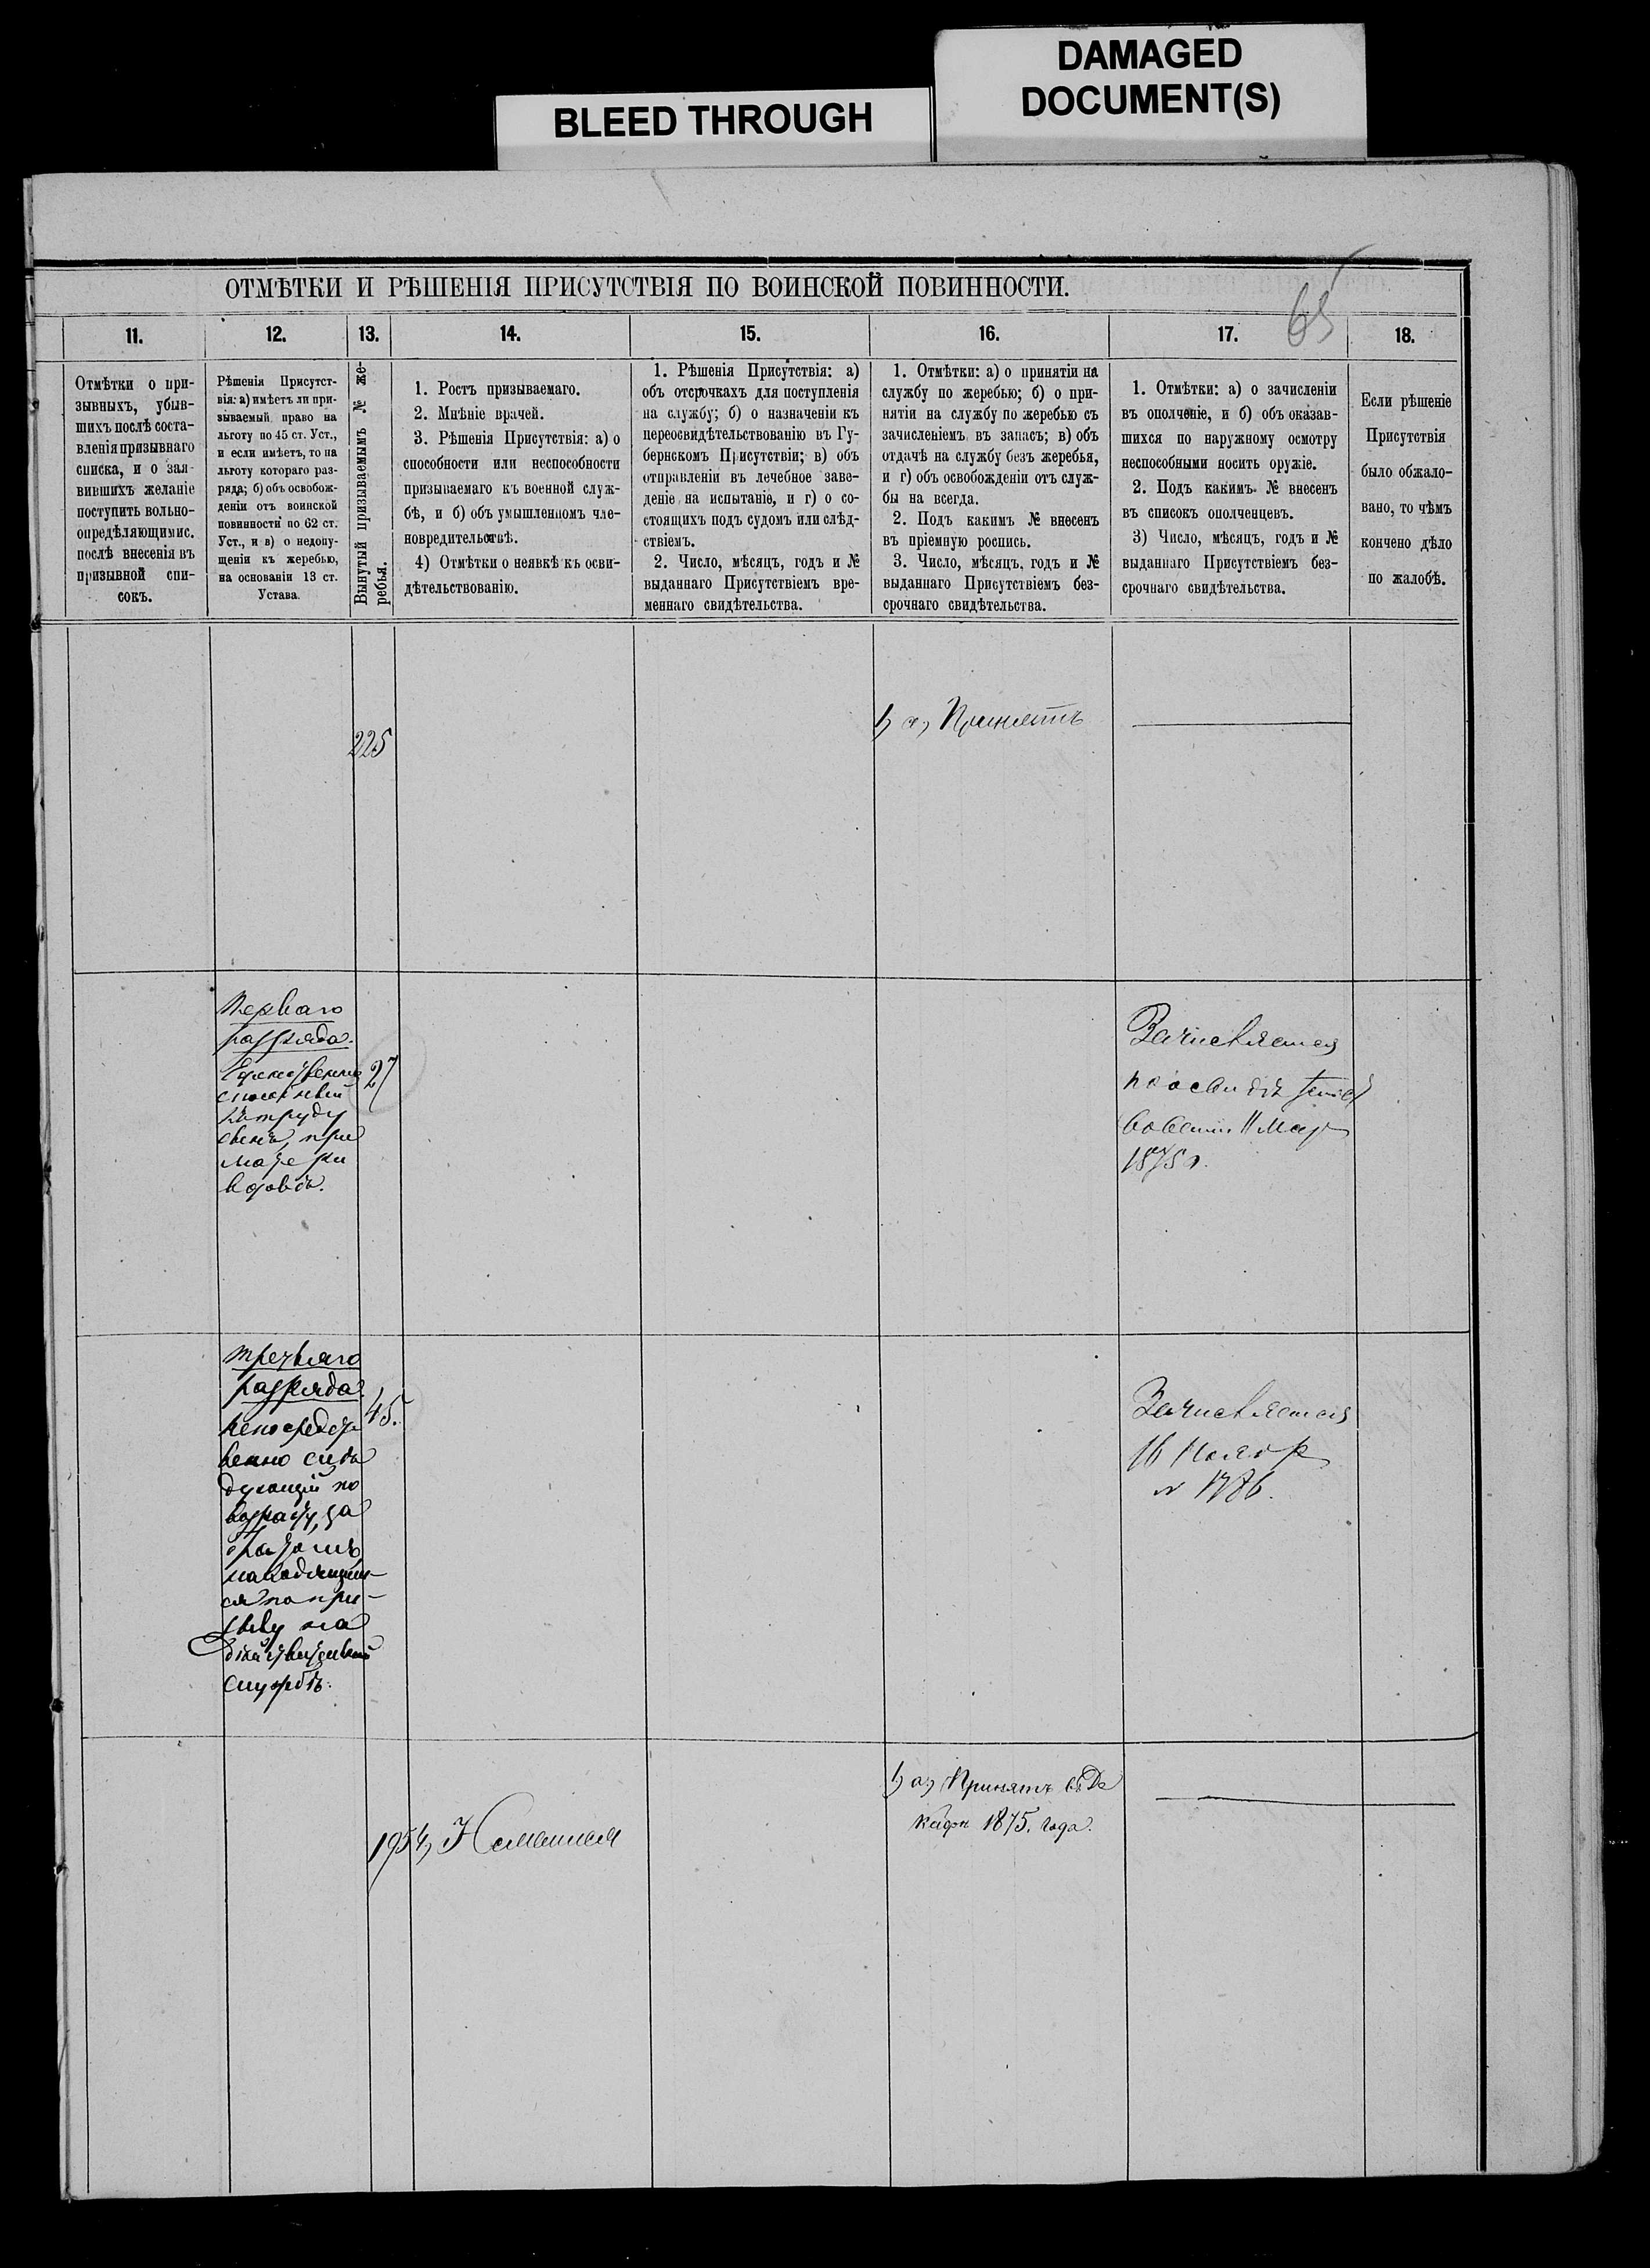 DAMAGED
DOCUMENT(S)
BLEED THROUGH
ОТМѢТКИ И РѢШЕНІЯ ПРИСУТСТВІЯ ПО ВОИНСКОЙ ПОВИННОСТИ.
65
11.
12.
13.
14.
15.
16.
17.
18.
Отмѣтки о при-
зывныхъ, убыв-
шихъ послѣ соста-
вленія призывнаго
списка, и о зая-
вившихъ желаніе
поступить вольно-
опредѣляющимис.
послѣ внесенія въ
призывной спи-
сокъ.
Рѣшенія Присутст-
вія: а) имѣетъ ли при-
зываемый право на
льготу по 45 ст. Уст.,
и если имѣетъ, то на
льготу котораго раз-
ряда; б) объ освобож-
деніи отъ воинской
повинности по 62 ст.
Уст., и в) о недопу-
щеніи къ жеребью,
на основаніи 13 ст.
Устава.
Вынутый призываемымъ № же-
ребья.
1. Ростъ призываемаго.
2. Мнѣніе врачей.
3. Рѣшенія Присутствія: а) о
способности или неспособности
призываемаго къ военной служ-
бѣ, и б) объ умышленномъ чле-
новредительствѣ.
4) Отмѣтки о неявкѣ къ осви-
дѣтельствованію.
1. Рѣшенія Присутствія: а)
объ отсрочкахъ для поступленія
на службу; б) о назначеніи къ
переосвидѣтельствованію въ Гу-
бернскомъ Присутствіи; в) объ
отправленіи въ лечебное заве-
деніе на испытаніе, и г) о со-
стоящихъ подъ судомъ или слѣд-
ствіемъ.
2. Число, мѣсяцъ, годъ и №
выданнаго Присутствіемъ вре-
меннаго свидѣтельства.
1. Отмѣтки: а) о принятіи на
службу по жеребью; б) о при-
нятіи на службу по жеребью съ
зачисленіемъ въ запасъ; в) объ
отдачѣ на службу безъ жеребья,
и г) объ освобожденіи отъ служ-
бы на всегда.
2. Подъ какимъ № внесенъ
въ пріемную роспись.
3. Число, мѣсяцъ, годъ и №
выданнаго Присутствіемъ без-
срочнаго свидѣтельства.
1. Отмѣтки: а) о зачисленіи
въ ополченіе, и б) объ оказав-
шихся по наружному осмотру
неспособными носить оружіе.
2. Подъ какимъ № внесенъ
въ списокъ ополченцевъ.
3) Число, мѣсяцъ, годъ и №
выданнаго Присутствіемъ без-
срочнаго свидѣтельства.
Если рѣшеніе
Присутствія
было обжало-
вано, то чѣмъ
кончено дѣло
по жалобѣ.
225
1, а, Принятъ
Перваго
разряда.
Единственно
способный
къ труду
сынъ, при
матери
вдовѣ.
27
Зачисляется
по освидѣтельст
вованіи 11 Мар
1875 г.
Третьяго
разряда.
непосредст
венно слѣ
дующій по
возрасту, за
братомъ
находящим-
ся по при-
зыву на
дѣйствительной
службѣ.
45.
Зачисляется
16 Нояб р
195
4,
1, а, Принятъ въ Де
кабр 1875. года.